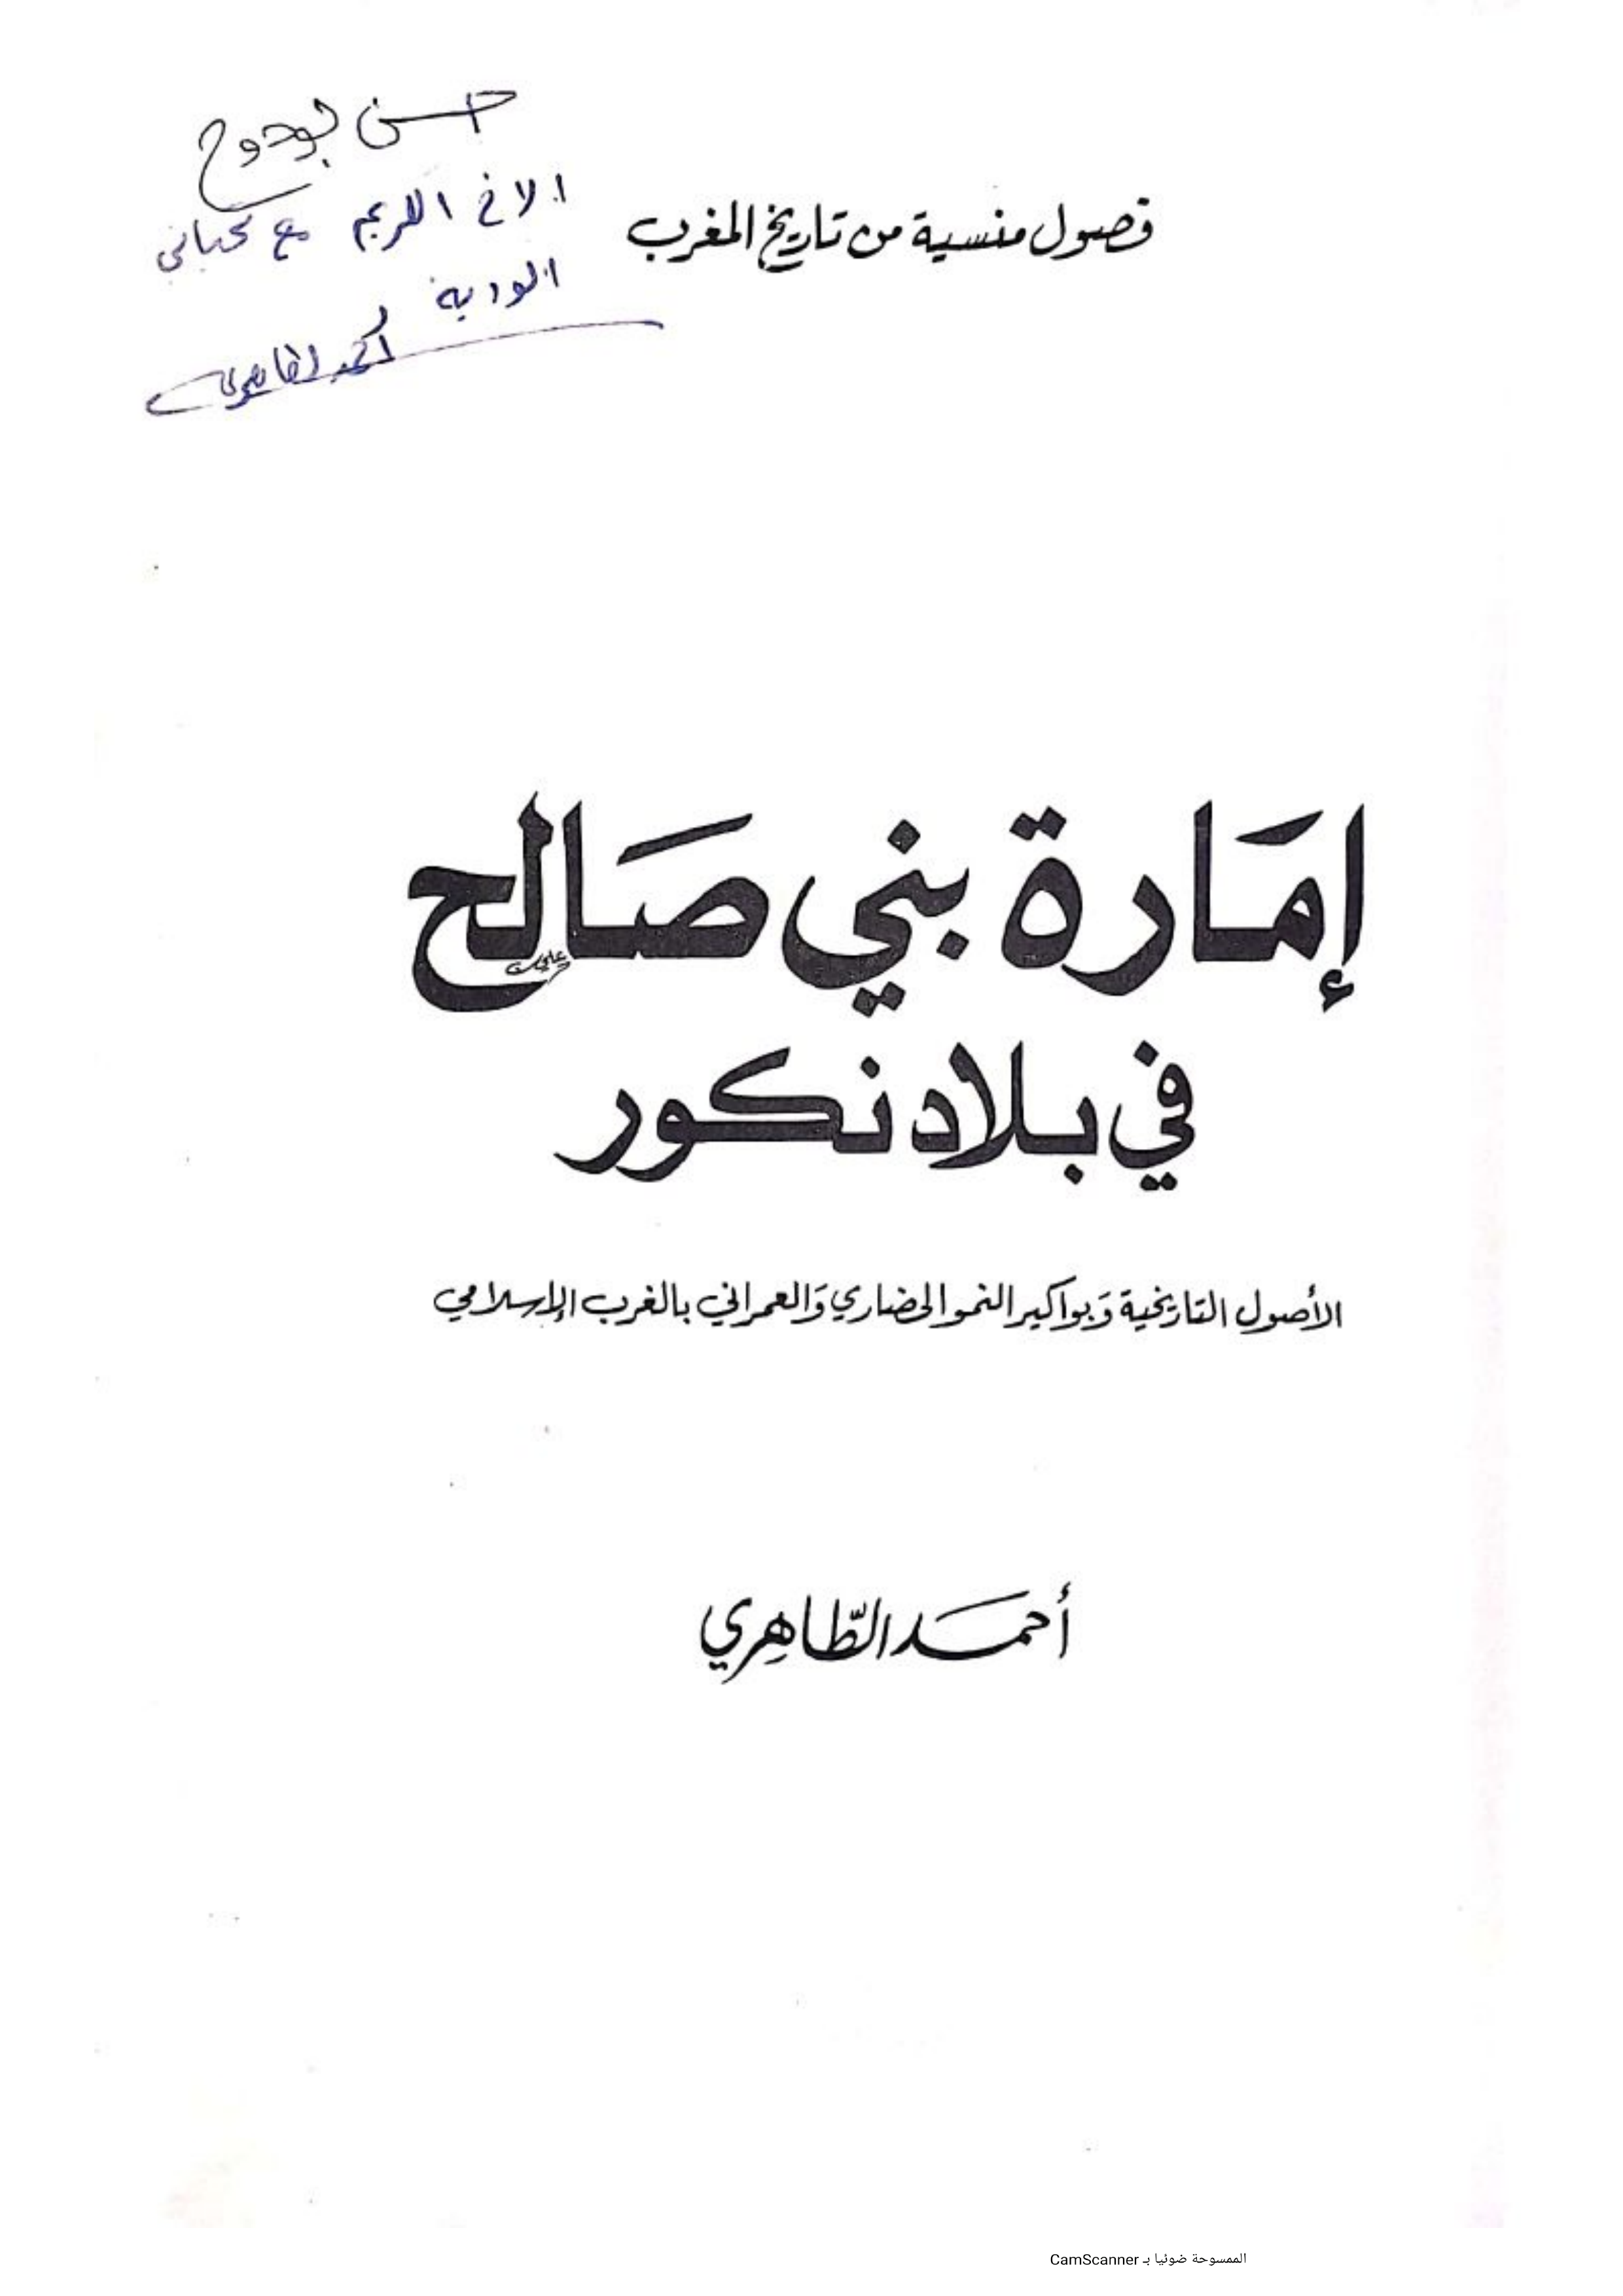 حسن بودوح
الاخ الكريم مع تحياتي
الودية
أحمد الطاهري
فصول منسية من تاريخ المغرب
إمَارة بني صَالح
في بلاد نكور
الأصول التاريخية وَبواكير النمو الحضاري وَالعمراني بالغرب الإسلامي
أحمَد الطّاهِري
الممسوحة ضوئيا بـ CamScanner